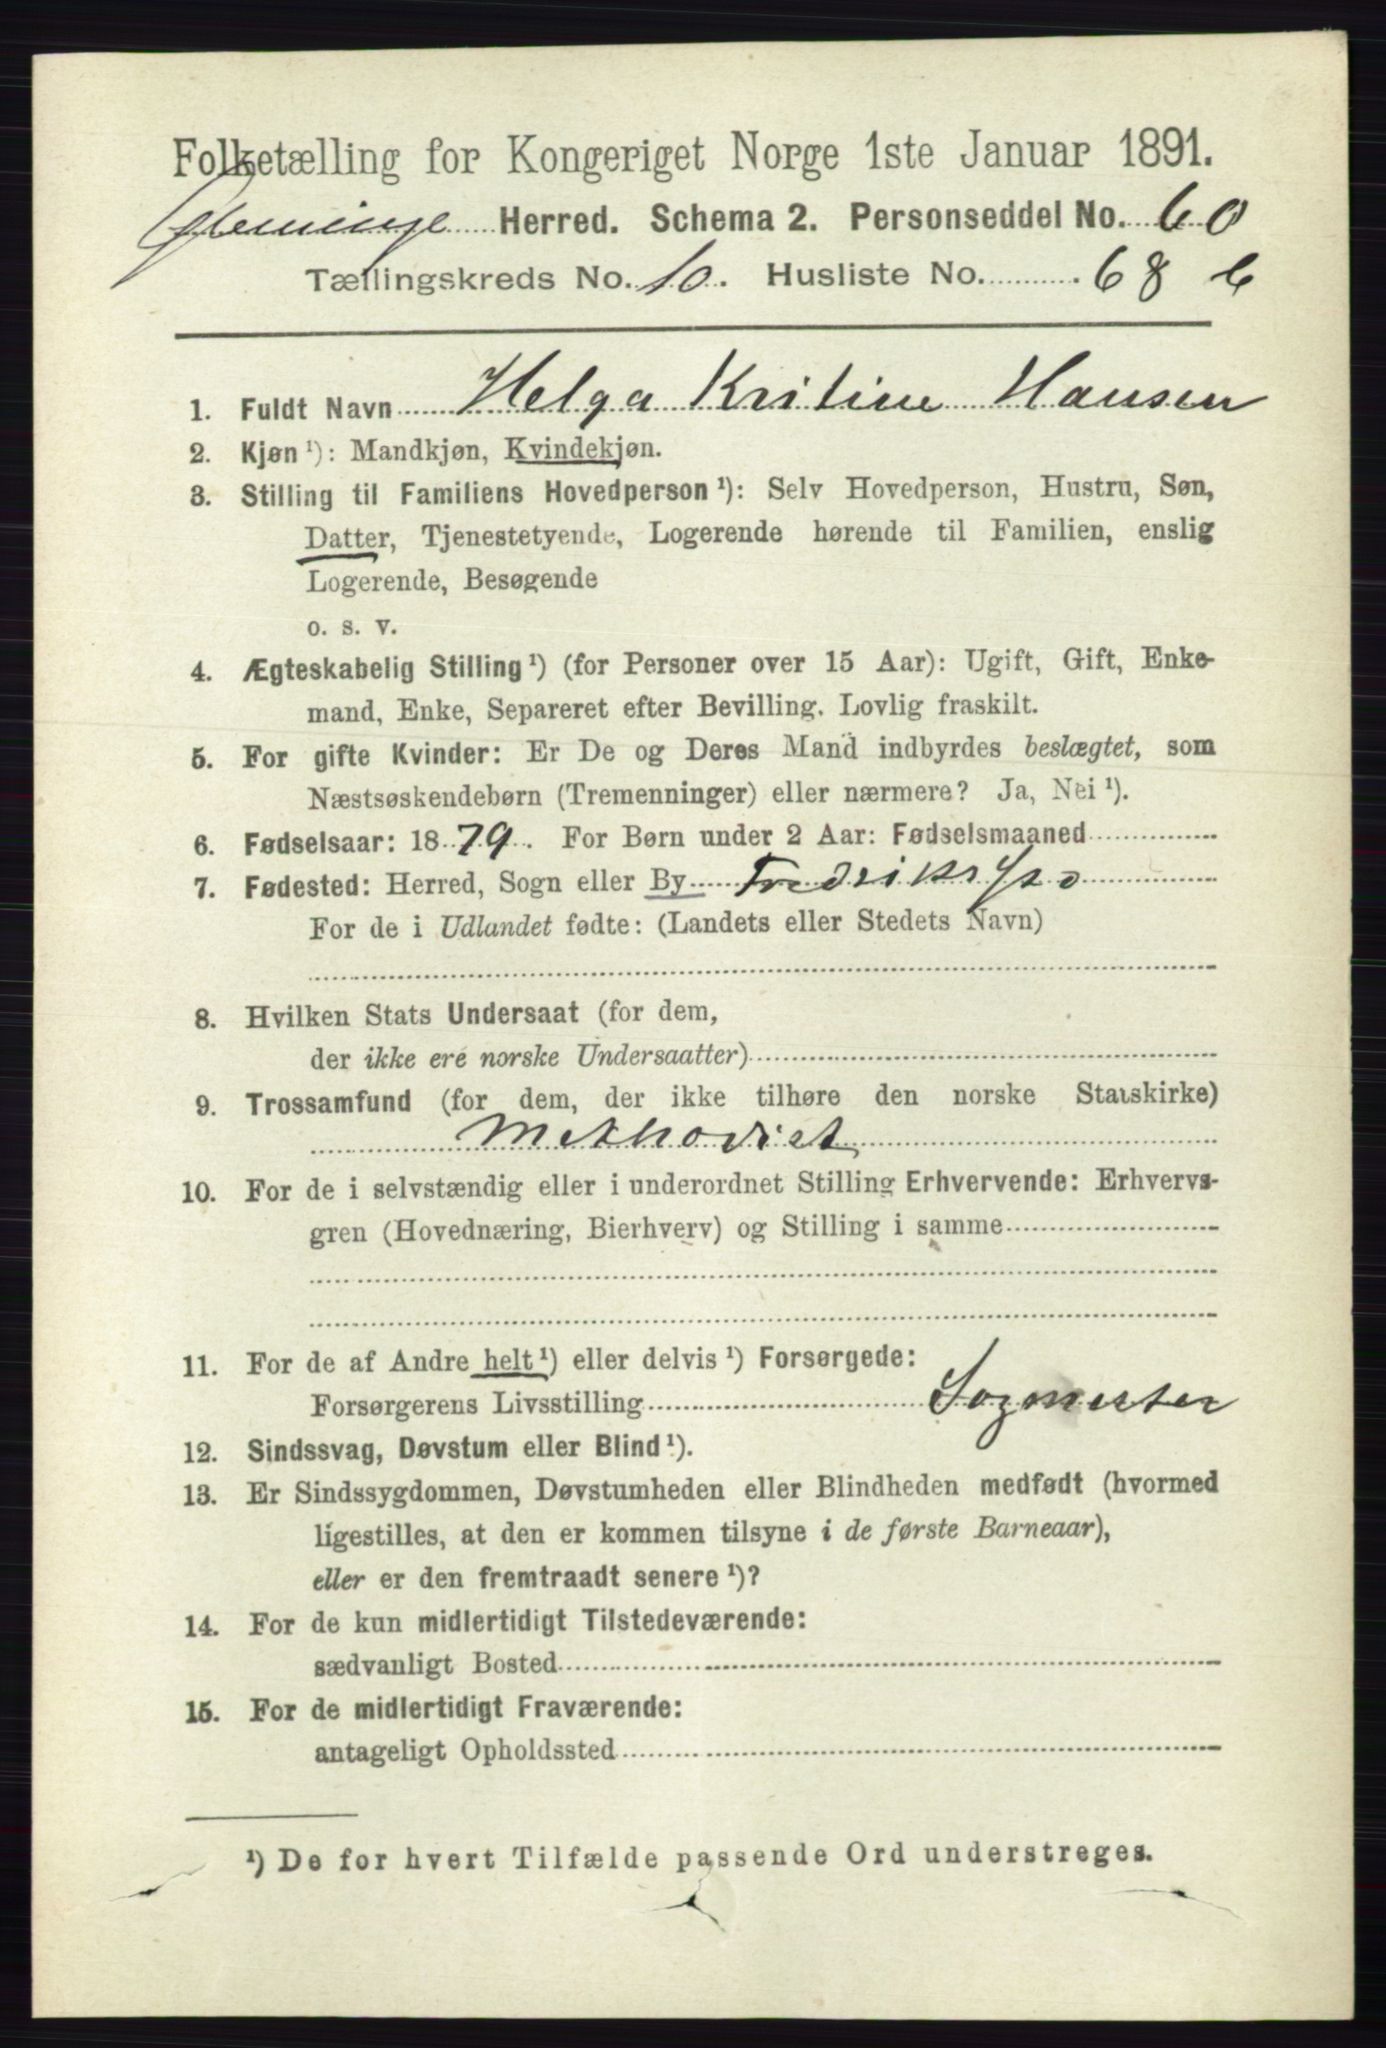 Folketælling for Kongeriget Norge 1ste Januar 1891.
Glemminge Herred. Schema 2. Personseddel No. 60
Tællingskreds No. 10. Husliste No. 68 b
1. Fuldt Navn Helga Kristine Hansen
2. Kjøn ¹): Mandkjøn, Kvindekjøn.
3. Stilling til Familiens Hovedperson ¹): Selv Hovedperson, Hustru, Søn,
Datter, Tjenestetyende, Logerende hørende til Familien, enslig
Logerende, Besøgende
o. s. v.
4. Ægteskabelig Stilling ¹) (for Personer over 15 Aar): Ugift, Gift, Enke-
mand, Enke, Separeret efter Bevilling. Lovlig fraskilt.
5. For gifte Kvinder: Er De og Deres Mand indbyrdes beslægtet, som
Næstsøskendebørn (Tremenninger) eller nærmere? Ja, Nei ¹).
6. Fødselsaar: 1879. For Børn under 2 Aar: Fødselsmaaned
7. Fødested: Herred, Sogn eller By
For de i Udlandet fødte: (Landets eller Stedets Navn)
8. Hvilken Stats Undersaat (for dem,
der ikke ere norske Undersaatter)
9. Trossamfund (for dem, der ikke tilhøre den norske Statskirke)
Methodist
10. For de i selvstændig eller i underordnet Stilling Erhvervende: Erhvervs-
gren (Hovednæring, Bierhverv) og Stilling i samme
11. For de af Andre helt ¹) eller delvis ¹) Forsørgede:
Forsørgerens Livsstilling Sagmester
12. Sindssvag, Døvstum eller Blind ¹).
13. Er Sindssygdommen, Døvstumheden eller Blindheden medfødt (hvormed
ligestilles, at den er kommen tilsyne i de første Barneaar),
eller er den fremtraadt senere ¹)?
14. For de kun midlertidigt Tilstedeværende:
sædvanligt Bosted
15. For de midlertidigt Fraværende:
antageligt Opholdssted
¹) De for hvert Tilfælde passende Ord understreges.